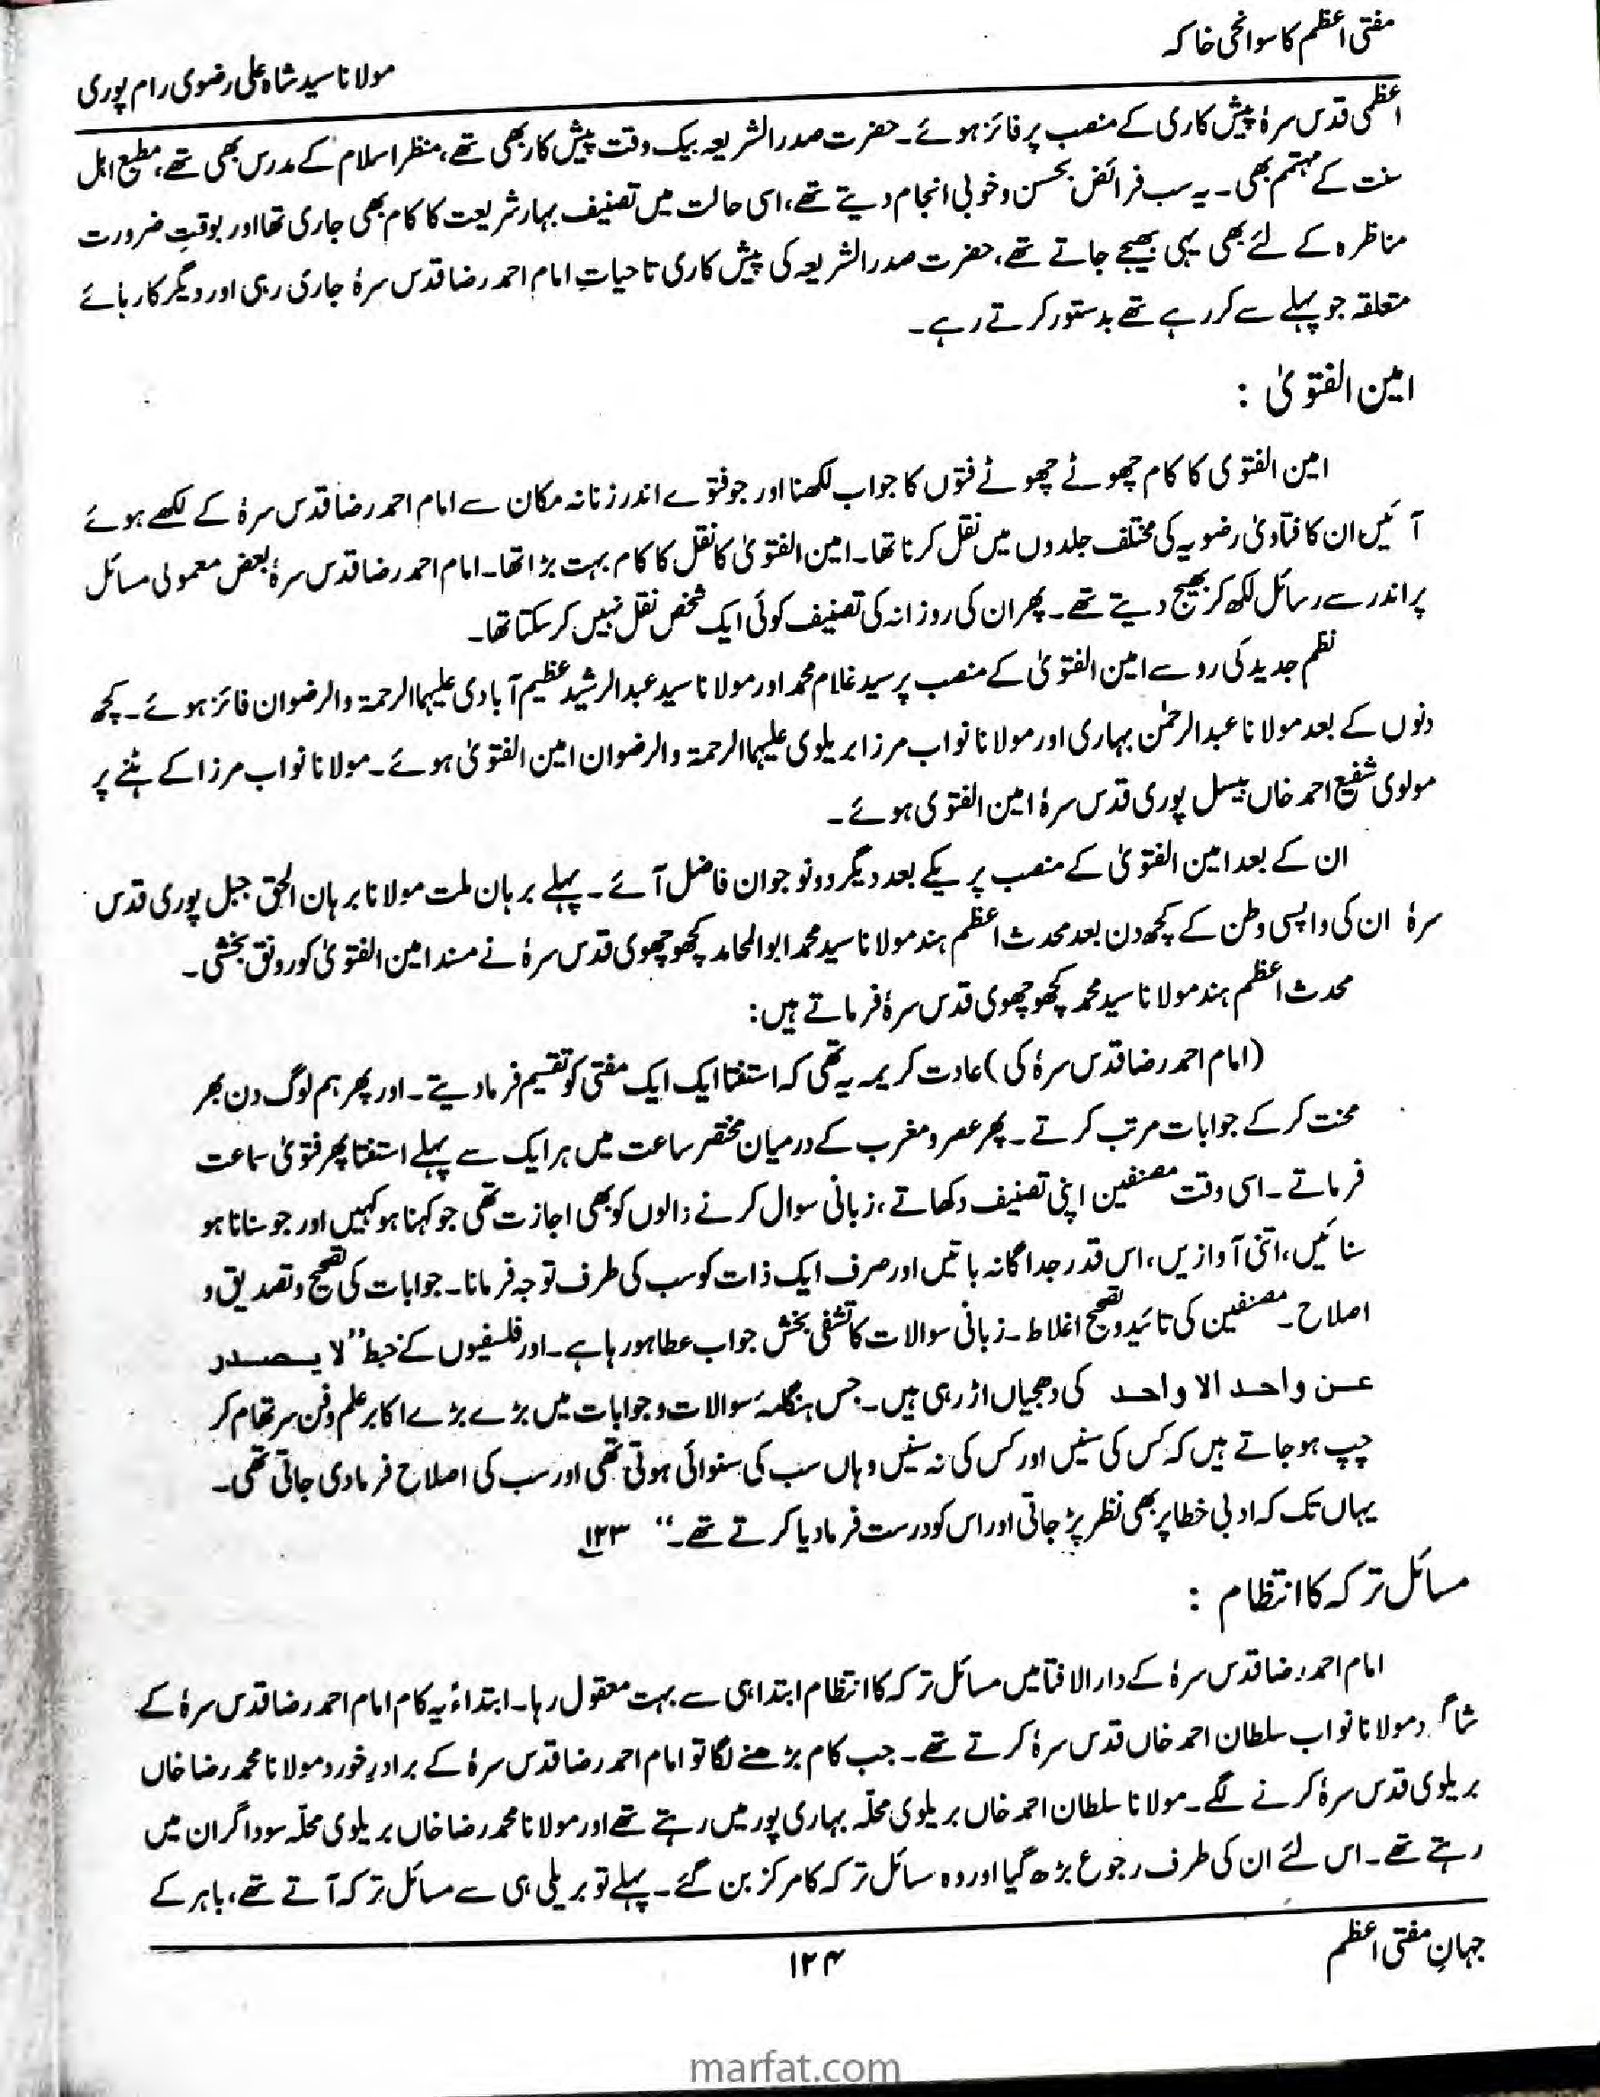 مفتی اعظم کا سوانحی خاکہ
مولانا سید شاہ علی رضوی رام پوری
اعظمی قدس سرہٗ پیش کاری کے منصب پر فائز ہوئے۔ حضرت صدر الشریعہ بیک وقت پیش کار بھی تھے، منظر اسلام کے مدرس بھی تھے، مطبع اہل
سنت کے مہتمم بھی۔ یہ سب فرائض بحسن و خوبی انجام دیتے تھے، اسی حالت میں تصنیف بہار شریعت کا کام بھی جاری تھا اور بوقتِ ضرورت
مناظرہ کے لئے بھی یہی بھیجے جاتے تھے، حضرت صدر الشریعہ کی پیش کاری تا حیاتِ امام احمد رضا قدس سرہٗ جاری رہی اور دیگر کارہائے
متعلقہ جو پہلے سے کر رہے تھے بدستور کرتے رہے۔
امین الفتویٰ :
امین الفتوی کا کام چھوٹے چھوٹے فتوں کا جواب لکھنا اور جو فتوے اندر زنانہ مکان سے امام احمد رضا قدس سرہٗ کے لکھے ہوئے
آئیں ان کا فتاویٰ رضویہ کی مختلف جلدوں میں نقل کرنا تھا۔ امین الفتویٰ کا نقل کا کام بہت بڑا تھا۔ امام احمد رضا قدس سرہٗ بعض معمولی مسائل
پر اندر سے رسائل لکھ کر بھیج دیتے تھے۔ پھر ان کی روزانہ کی تصنیف کوئی ایک شخص نقل نہیں کر سکتا تھا۔
نظم جدید کی رو سے امین الفتویٰ کے منصب پر سید غلام محمد اور مولانا سید عبد الرشید عظیم آبادی علیہما الرحمۃ والرضوان فائز ہوئے۔ کچھ
دنوں کے بعد مولانا عبد الرحمٰن بہاری اور مولانا نواب مرزا بریلوی علیہما الرحمۃ والرضوان امین الفتویٰ ہوئے۔ مولانا نواب مرزا کے ہٹنے پر
مولوی شفیع احمد خاں بیسل پوری قدس سرہٗ امین الفتوی ہوئے۔
ان کے بعد امین الفتویٰ کے منصب پر یکے بعد دیگر دو نوجوان فاضل آئے۔ پہلے برہان ملت مولانا برہان الحق جبل پوری قدس
سرہٗ ان کی واپسی وطن کے کچھ دن بعد محدث اعظم ہند مولانا سید محمد ابو المحامد کچھوچھوی قدس سرہٗ نے مسند امین الفتویٰ کو رونق بخشی۔
محدث اعظم ہند مولانا سید محمد کچھوچھوی قدس سرہٗ فرماتے ہیں:
(امام احمد رضا قدس سرہٗ کی) عادت کریمہ یہ تھی کہ استفتا ایک ایک مفتی کو تقسیم فرما دیتے۔ اور پھر ہم لوگ دن بھر
محنت کر کے جوابات مرتب کرتے۔ پھر عصر و مغرب کے درمیان مختصر ساعت میں ہر ایک سے پہلے استفتا پھر فتویٰ سماعت
فرماتے۔ اسی وقت مصنفین اپنی تصنیف دکھاتے، زبانی سوال کرنے والوں کو بھی اجازت تھی جو کہنا ہو کہیں اور جو سنانا ہو
سنائیں، اتنی آوازیں، اس قدر جداگانہ باتیں اور صرف ایک ذات کو سب کی طرف توجہ فرمانا۔ جوابات کی تصحیح و تصدیق و
اصلاح۔ مصنفین کی تائید و تصحیح اغلاط۔ زبانی سوالات کا تشفی بخش جواب عطا ہو رہا ہے۔ اور فلسفیوں کے خبط ”لا یصدر
عن واحد الا واحد کی دھجیاں اڑ رہی ہیں۔ جس ہنگامۂ سوالات و جوابات میں بڑے بڑے اکابر علم و فن سر تھام کر
چپ ہو جاتے ہیں کہ کس کی سنیں اور کس کی نہ سنیں وہاں سب کی سنوائی ہوتی تھی اور سب کی اصلاح فرما دی جاتی تھی۔
یہاں تک کہ ادبی خطا پر بھی نظر پڑ جاتی اور اس کو درست فرما دیا کرتے تھے۔“ ۱۲۳
مسائل ترکہ کا انتظام :
امام احمد رضا قدس سرہٗ کے دار الافتا میں مسائل ترکہ کا انتظام ابتدا ہی سے بہت معقول رہا۔ ابتداءً یہ کام امام احمد رضا قدس سرہٗ کے
شاگرد مولانا نواب سلطان احمد خاں قدس سرہٗ کرتے تھے۔ جب کام بڑھنے لگا تو امام احمد رضا قدس سرہٗ کے برادرِ خورد مولانا محمد رضا خاں
بریلوی قدس سرہٗ کرنے لگے۔ مولانا سلطان احمد خاں بریلوی محلّہ بہاری پور میں رہتے تھے اور مولانا محمد رضا خاں بریلوی محلّہ سوداگران میں
رہتے تھے۔ اس لئے ان کی طرف رجوع بڑھ گیا اور وہ مسائل ترکہ کا مرکز بن گئے۔ پہلے تو بریلی ہی سے مسائل ترکہ آتے تھے، باہر کے
جہانِ مفتی اعظم
۱۲۴
marfat.com